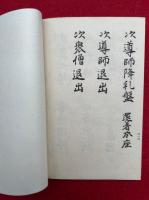 次導師降礼盤 還着本座
次導師退出
次衆僧退出